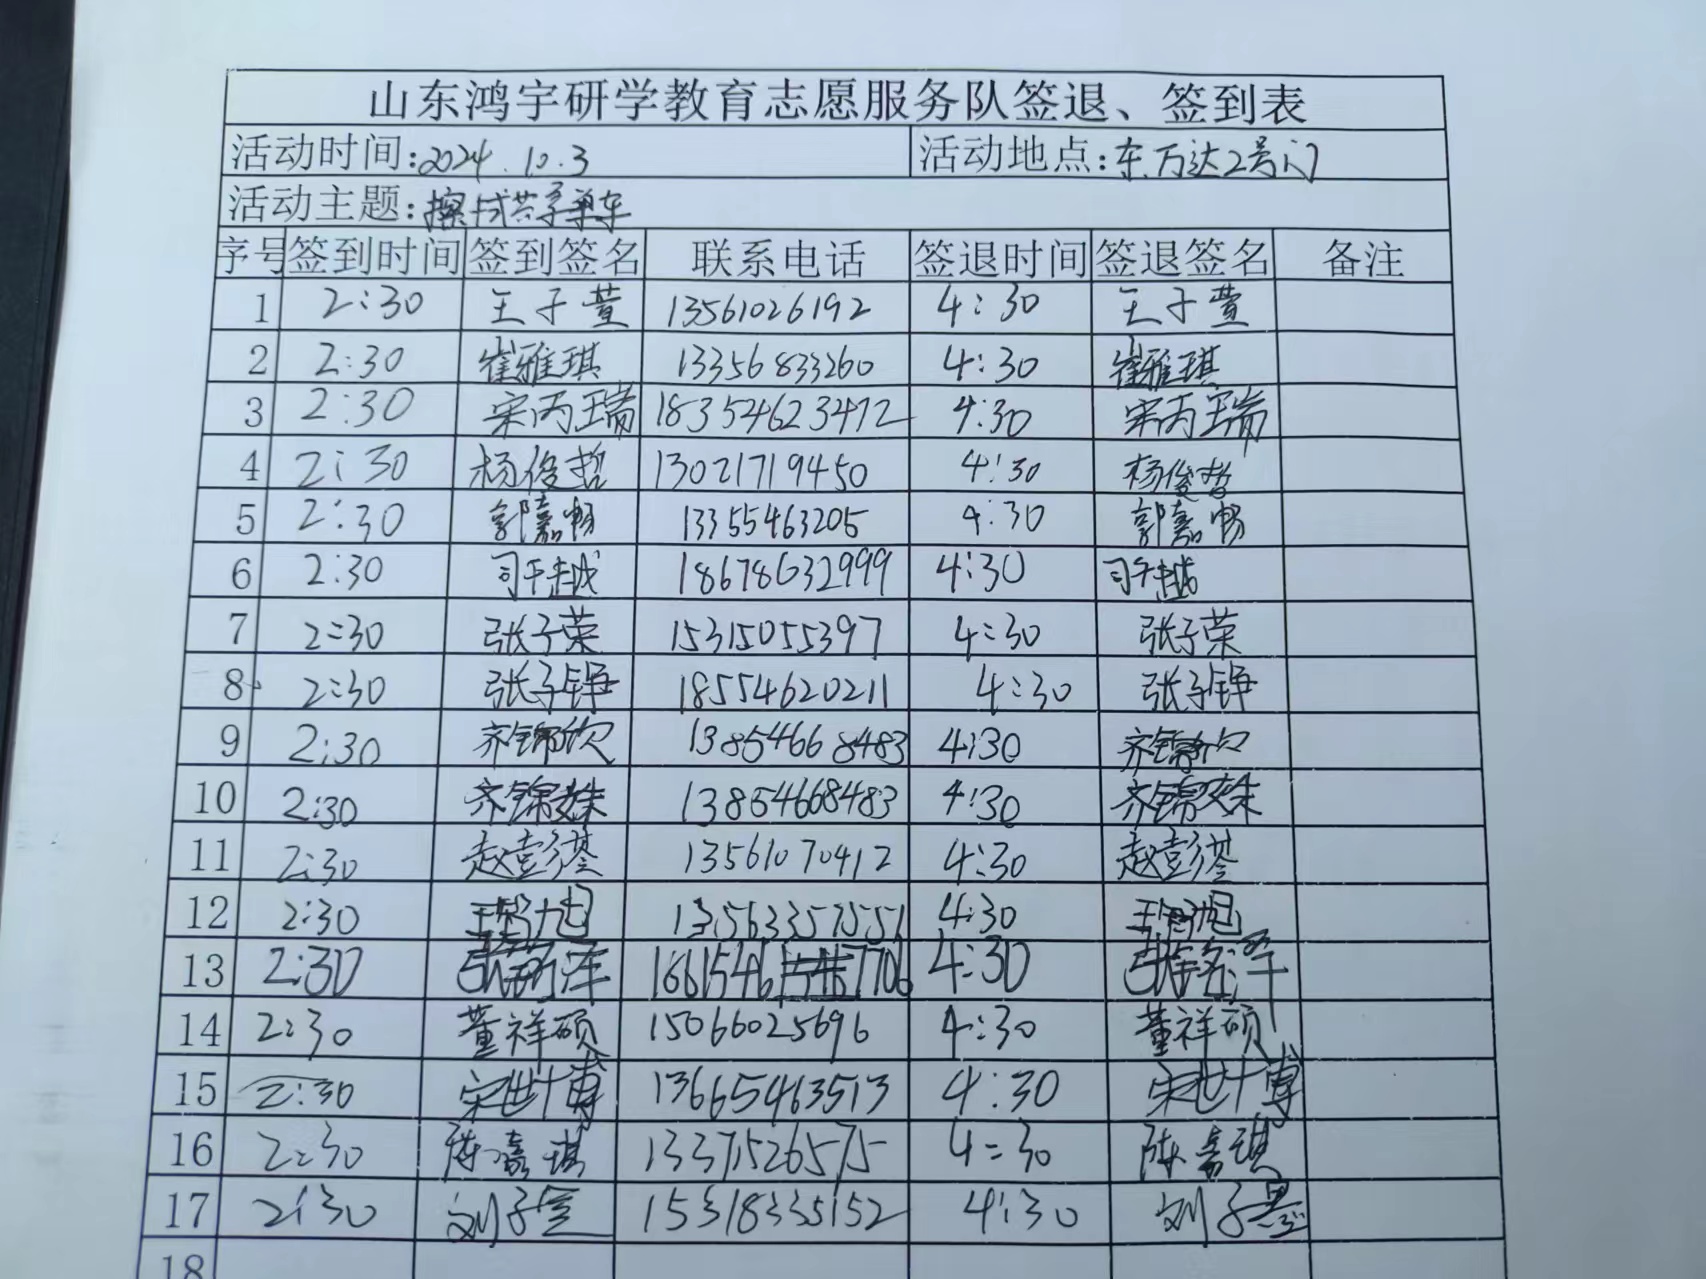 山东鸿宇研学教育志愿服务队签退、签到表
活动时间:2024.10.3 活动地点:东万达2号门
活动主题:擦拭共享单车
序号 签到时间 签到签名 联系电话 签退时间 签退签名 备注
1 2:30 王子萱 13561026192 4:30 王子萱
2 2:30 崔雅琪 13356833260 4:30 崔雅琪
3 2:30 宋丙瑞 18354623472 4:30 宋丙瑞
4 2:30 杨俊哲 13021719450 4:30 杨俊哲
5 2:30 郭嘉畅 13355463205 4:30 郭嘉畅
6 2:30 司千越 18678632999 4:30 司千越
7 2:30 张子荣 15315055397 4:30 张子荣
8 2:30 张子铮 18554620211 4:30 张子铮
9 2:30 齐锦欣 13854668483 4:30 齐锦欣
10 2:30 齐锦姝 13854668483 4:30 齐锦姝
11 2:30 赵彭鋆 13561070412 4:30 赵彭鋆
12 2:30 13563357551 4:30
13 2:30 4:30
14 2:30 董祥硕 15066025696 4:30 董祥硕
15 2:30 宋世博 13665463513 4:30 宋世博
16 2:30 陈嘉琪 13371526575 4:30 陈嘉琪
17 2:30 刘子 15318335152 4:30 刘子
18